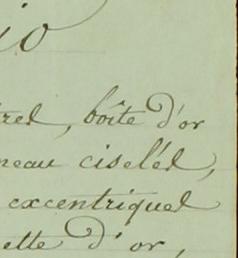 io
rel, boîte d'or
neau ciselés,
excentriques
ette d'or,